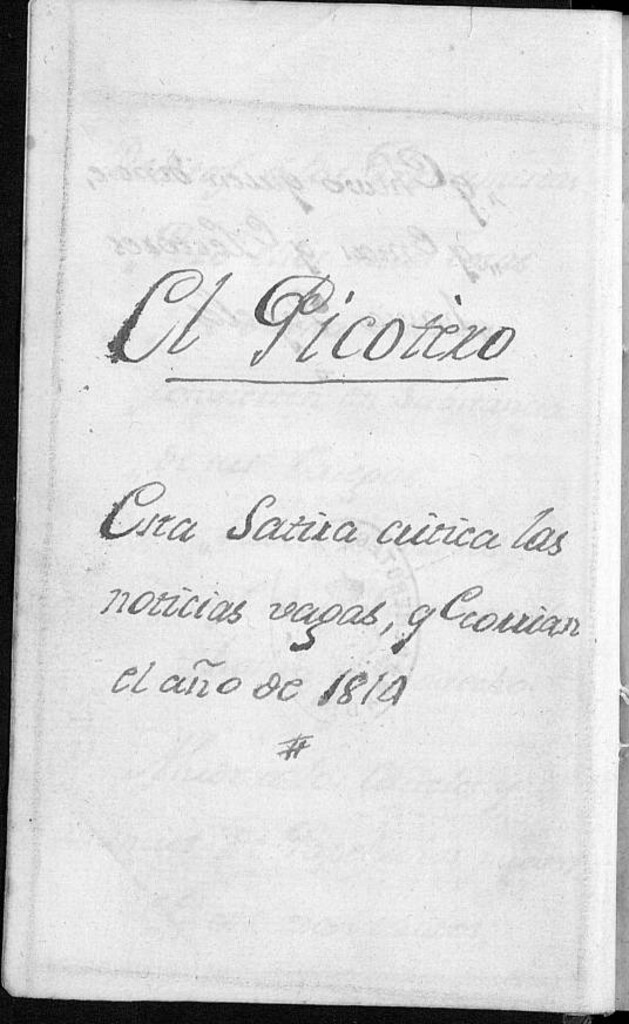 El Picotero
Esta Satira critica las
noticias vagas, q.e corrian
el año de 1810
#